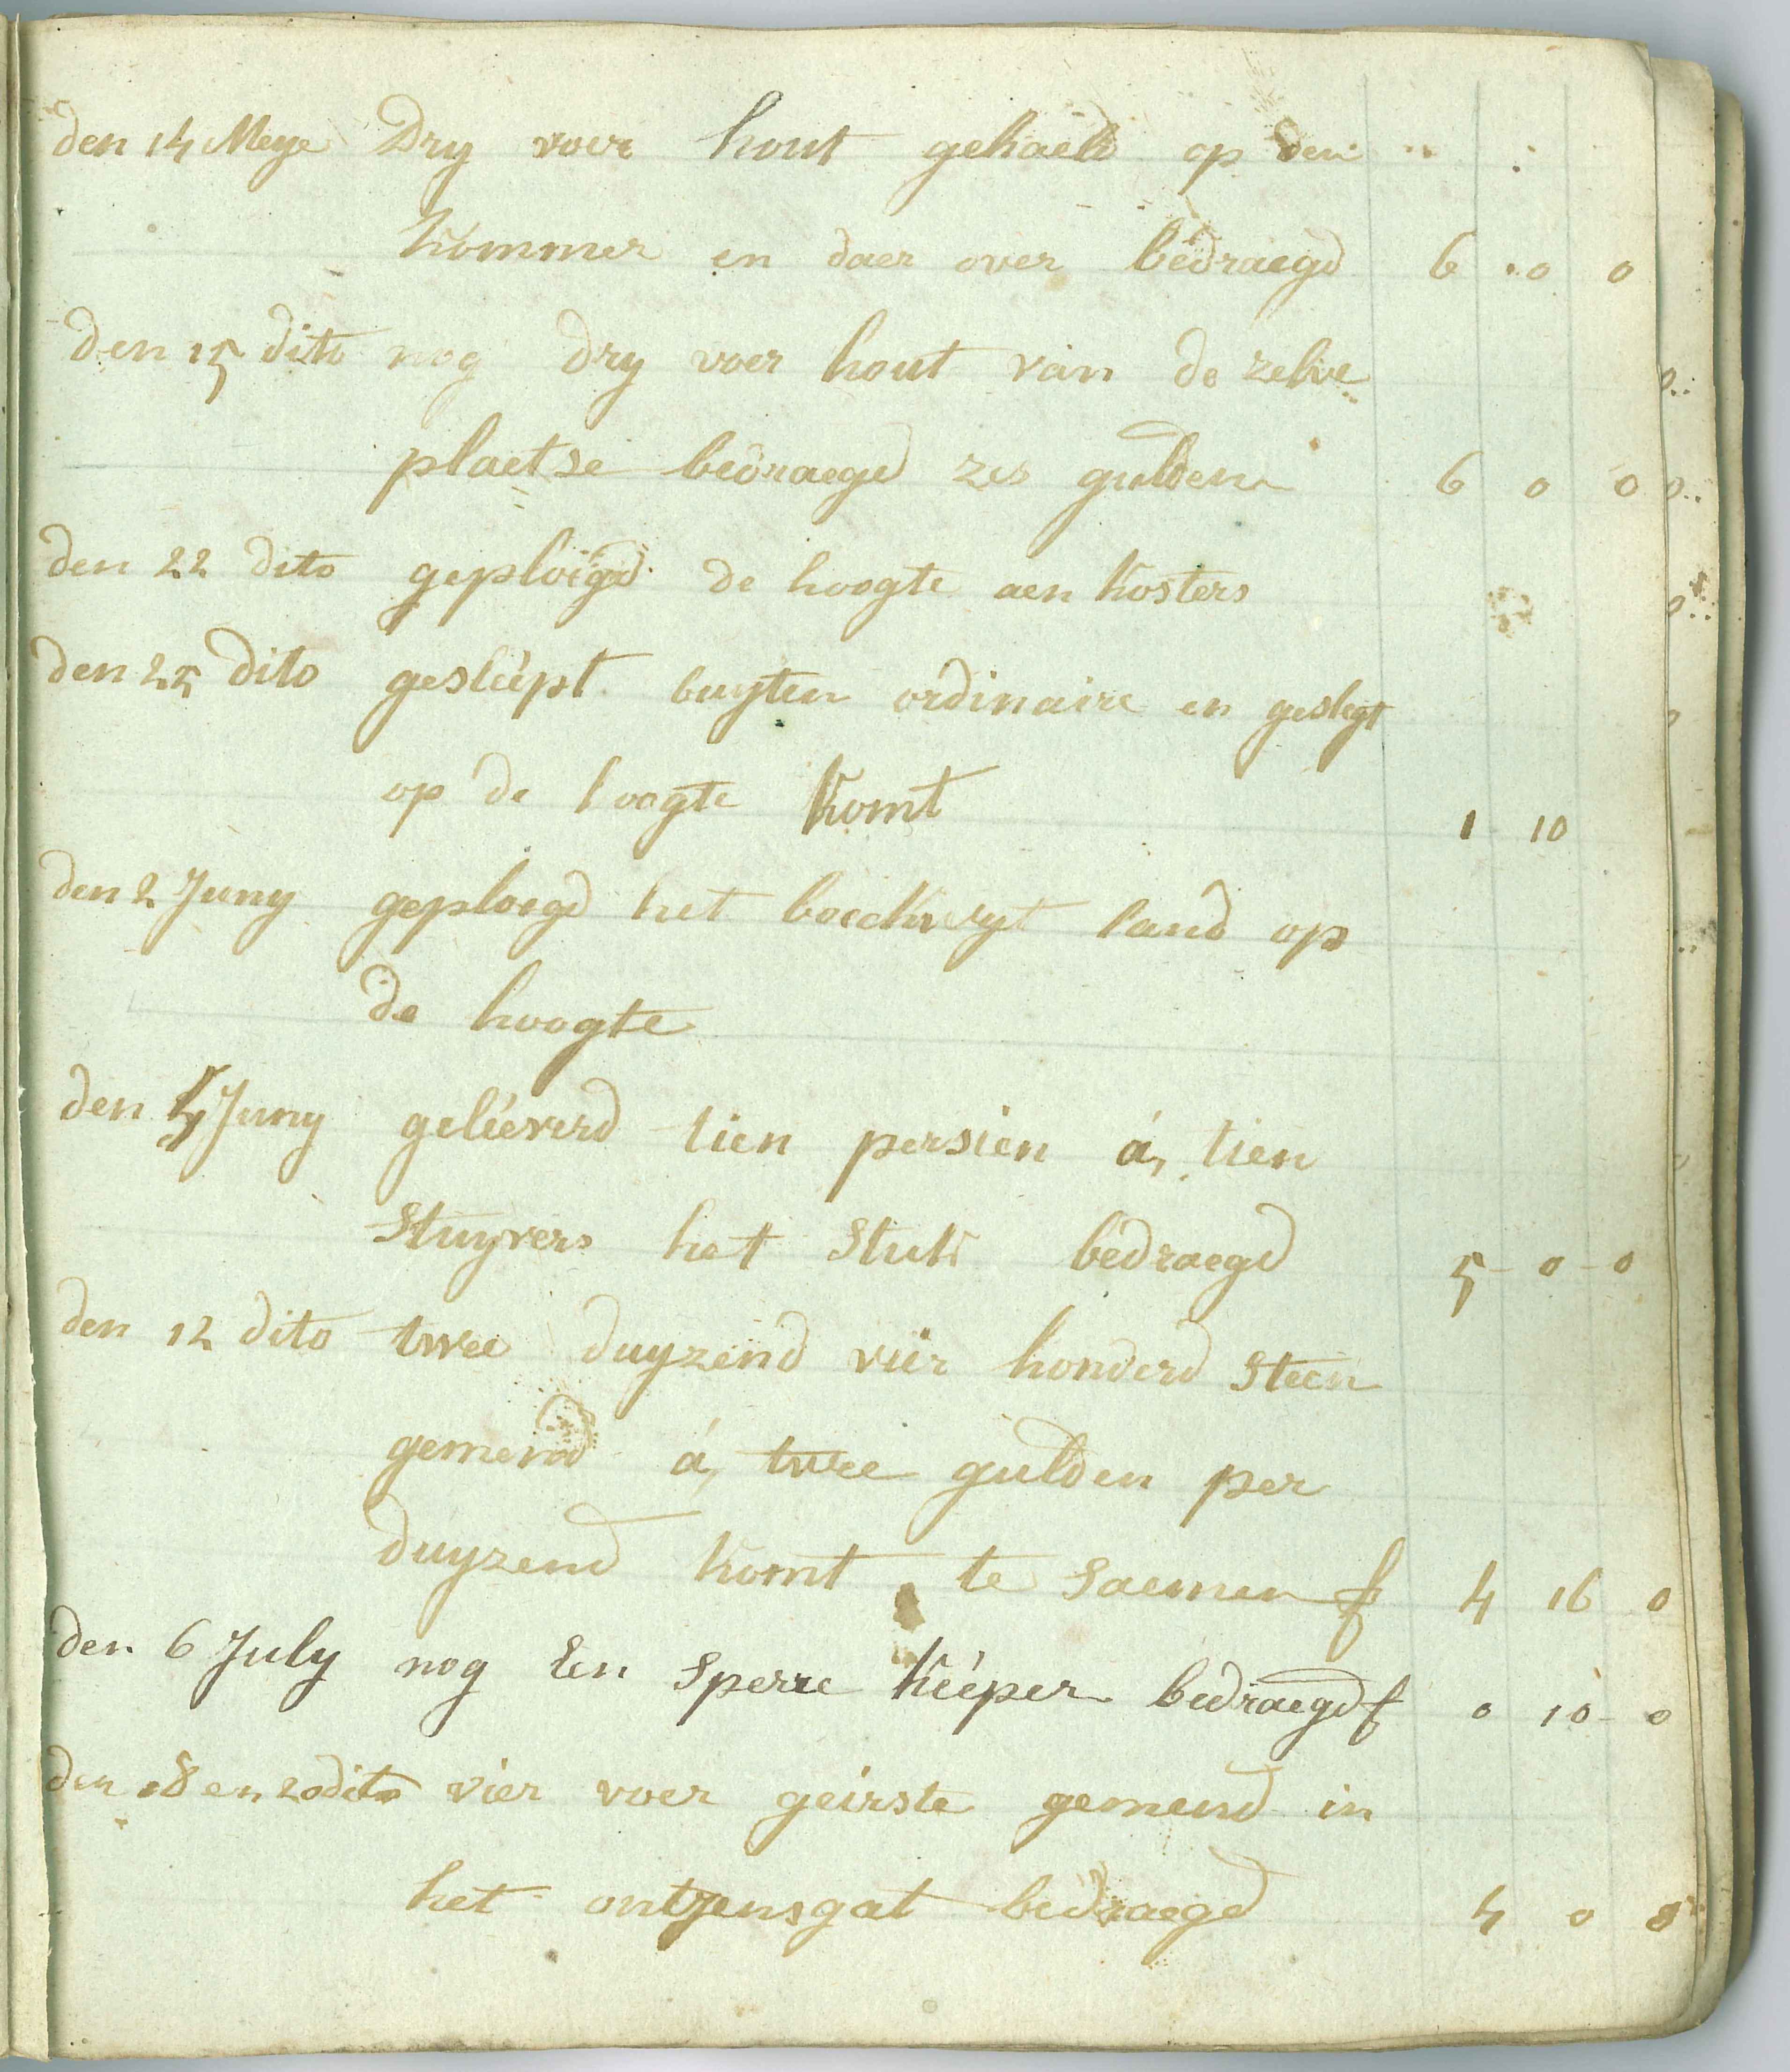 den 14 Meye Dry voer hout gehaeld op den
kommer en daer over bedraegd 6 0 0
den 15 dito nog dry voer hout van de zelve
plaetse bedraegd zes gulden 6 0 0
den 22 dito geploegd de hoogte aen kosters
den 25 dito gesléépt buyten ordinaire en geslegt
op de hoogte komt 1 10
den 2 Juny geploegd het boeckweyt land op
de hoogte
den Juny geléeverd tien persien á, tien
Stuyvers het Stuk bedraegd 5 - 0 - 0
den 12 dito twee duyzend vier honderd Steen
gemend á, twee gulden per
duyzend komt te saemen f 4 16 0
den 6 July nog Een Sperre kééper bedraegd f 0 10 - 0
den 18 en 20 dito vier voer geirste gemend in
het ontjensgat bedraegd 4 0 0